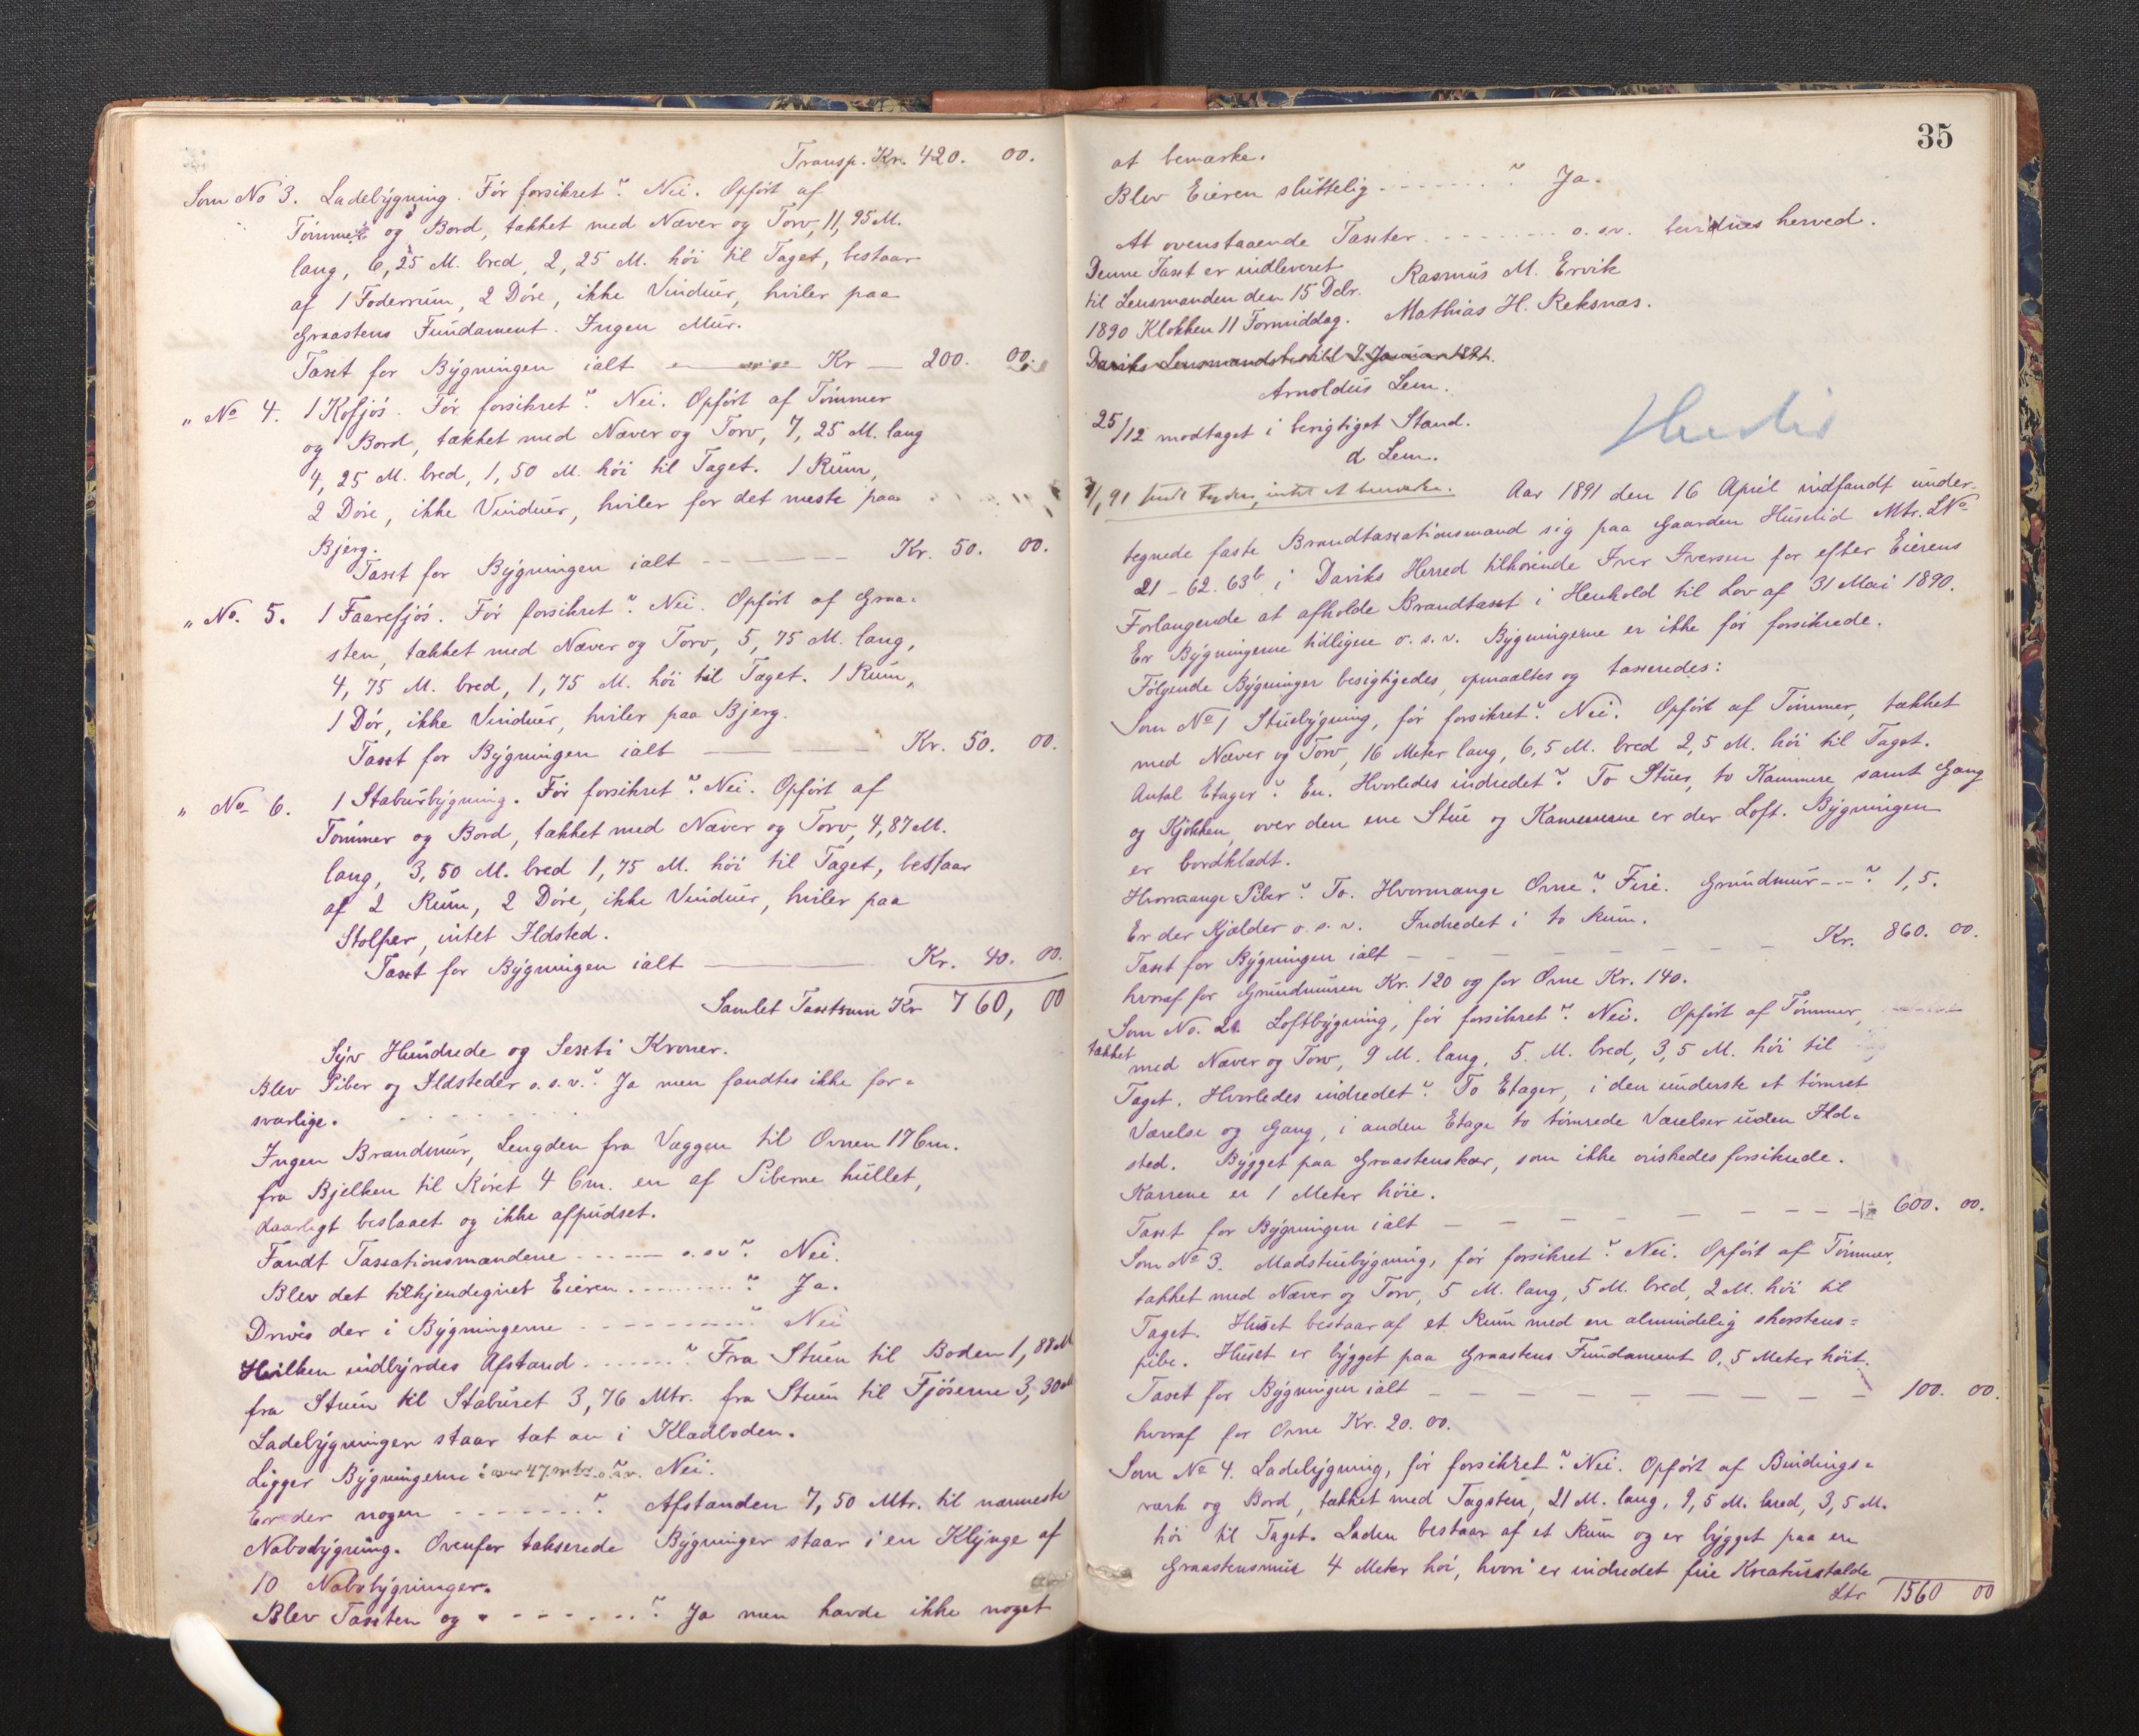 Transp. Kr. 420. 00.
Som No 3. Ladebýgning. Før forsikret? Nei. Opført af
Tømmer og Bord, tækket med Næver og Torv, 11,95 M.
lang, 6,25 M. bred, 2,25 M. høi til Taget, bestaar
af 1 Foderrum, 2 Døre, ikke Vinduer, hviler paa
Graastens Fundament. Ingen Mur.
Taxt for Býgningen ialt Kr — 200. 00.
" No 4. 1 Kofjøs. Før forsikret? Nei. Opført af Tømmer
og Bord, tækket med Næver og Torv, 7,25 M. lang
4,25 M. bred, 1,50 M. høi til Taget. 1 Rum,
2 Døre, ikke Vinduer, hviler for det meste paa
Bjerg.
Taxt for Býgningen ialt - - - - Kr. 50. 00.
" No. 5. 1 Faarefjøs. Før forsikret? Nei. Opført af Graa-
sten, tækket med Næver og Torv, 5,75 M. lang,
4,75 M. bred, 1,75 M. høi til Taget. 1 Rum,
1 Dør, ikke Vinduer, hviler paa Bjerg.
Taxt for Býgningen ialt — — Kr. 50. 00.
" No 6. 1 Stabursbýgning. Før forsikret? Nei. Opført af
Tømmer og Bord, tækket med Næver og Torv, 4,87 M.
lang, 3,50 M. bred 1,75 M. høi til Taget, bestaar
af 2 Rum, 2 Døre, ikke Vinduer, hviler paa
Stolper, intet Ildsted.
Taxt for Býgningen ialt — Kr. 40. 00.
Samlet Taxtsum Kr 760, 00
Sýv Hundrede og Sexti Kroner.
Blev Piber og Ildsteder o.s.v.? Ja men fandtes ikke for-
svarlige.
Ingen Brandmur, Lengden fra Væggen til Ovnen 17 Cm.
fra Bjelken til Røret 4 Cm. en af Piberne hullet,
daarligt beslaaet og ikke afpudset.
Fandt Taxationsmændene - - - - o.s.v? Nei.
Blev det tilkjendegivet Eieren ........? Ja.
Drives der i Býgningerne - - - - - - ? Nei
Hvilken indbýrdes Afstand .......? Fra Stuen til Boden 1,88 M
fra Stuen til Staburet 3,76 Mtr. fra Stuen til Fjøserne 3,30 M
Ladebýgningen staar tæt an i Klædboden.
Ligger Býgningerne i over 47 mtr. o.s.v. Nei.
Er der nogen - - - - - - -? Afstanden 7,50 Mtr. til nærmeste
Nabobýgning. Ovenfor takserede Býgninger staar i en Klýnge af
10 Nabobýgninger.
Blev Taxten og - - - - - - -? Ja men havde ikke noget
35
at bemærke.
Blev Eieren sluttelig - - - - - -? Ja.
At ovenstaaende Taxter - - - - - - - o.s.v. bevidnes herved.
Denne Taxt er indleveret
til Lensmanden den 15 Dcbr.
1890 Klokken 11 Formiddag.
Rasmus M. Ervik
Mathias H. Reksnæs.
Daviks Lensmandsbestil 7 Januar 1891.
Arnoldus Lem.
25/12 modtaget i berigtiget Stand.
A Lem.
Huslid
intet at bemærke.
Aar 1891 den 16 April indfandt under-
tegnede faste Brandtaxationsmænd sig paa Gaarden Huslid Mtr. LNo
21 - 62. 63b i Daviks Herred tilhørende Iver Iversen for efter Eierens
Forlangende at afholde Brandtaxt i Henhold til Lov af 31 Mai 1890.
Er Býgningerne tidligere o.s.v. Býgningerne er ikke før forsikrede.
Følgende Býgninger besigtigedes, opmaaltes og taxeredes:
Som No 1 Stuebýgning, før forsikret? Nei. Opført af Tømmer, tækket
med Næver og Torv, 16 Meter lang, 6,5 M. bred 2,5 M. høi til Taget.
Antal Etager? En. Hvorledes indredet? To Stuer, to Kammere samt Gang
og Kjøkken, over den ene Stue og Kammerne er der Loft. Býgningen
er bordklædt.
Hvormange Piber? To. Hvormange Ovne? Fire. Grundmur - -? 1,5.
Er der Kjælder o.s.v. Indredet i to Rum.
Taxt for Býgningen ialt - - - - - - - - Kr. 860. 00.
hvoraf for Grundmuren Kr. 120 og for Ovne Kr. 140.
Som No. 2. Loftbýgning, før forsikret? Nei. Opført af Tømmer,
tækket med Næver og Torv, 9 M. lang, 5 M. bred, 3,5 M. høi til
Taget. Hvorledes indredet? To Etager, i den underste et tømret
Værelse og Gang, i anden Etage to tømrede Værelser uden Ild-
sted. Býgget paa Graastenskar, som ikke ønskedes forsikrede.
Karrene er 1 Meter høie.
Taxt for Býgningen ialt - - - - - - - - 600. 00.
Som No 3. Madstuebýgning, før forsikret? Nei. Opført af Tømmer,
tækket med Næver og Torv, 5 M. lang, 5 M. bred, 2 M. høi til
Taget. Huset bestaar af et Rum med en almindelig skorstens=
pibe. Huset er býgget paa Graastens Fundament 0,5 Meter høit.
Taxt for Býgningen ialt - - - - - - - - 100. 00.
hvoraf for Ovne Kr. 20. 00.
Som No 4. Ladebýgning, før forsikret? Nei. Opført af Bindings-
værk og Bord, tækket med Tagsten, 21 M. lang, 9,5 M. bred, 3,5 M.
høi til Taget. Laden bestaar af et Rum og er býgget paa en
Graastensmur 4 Meter høi, hvori er indredet fire Kreaturstalde
Ltr 1560 00